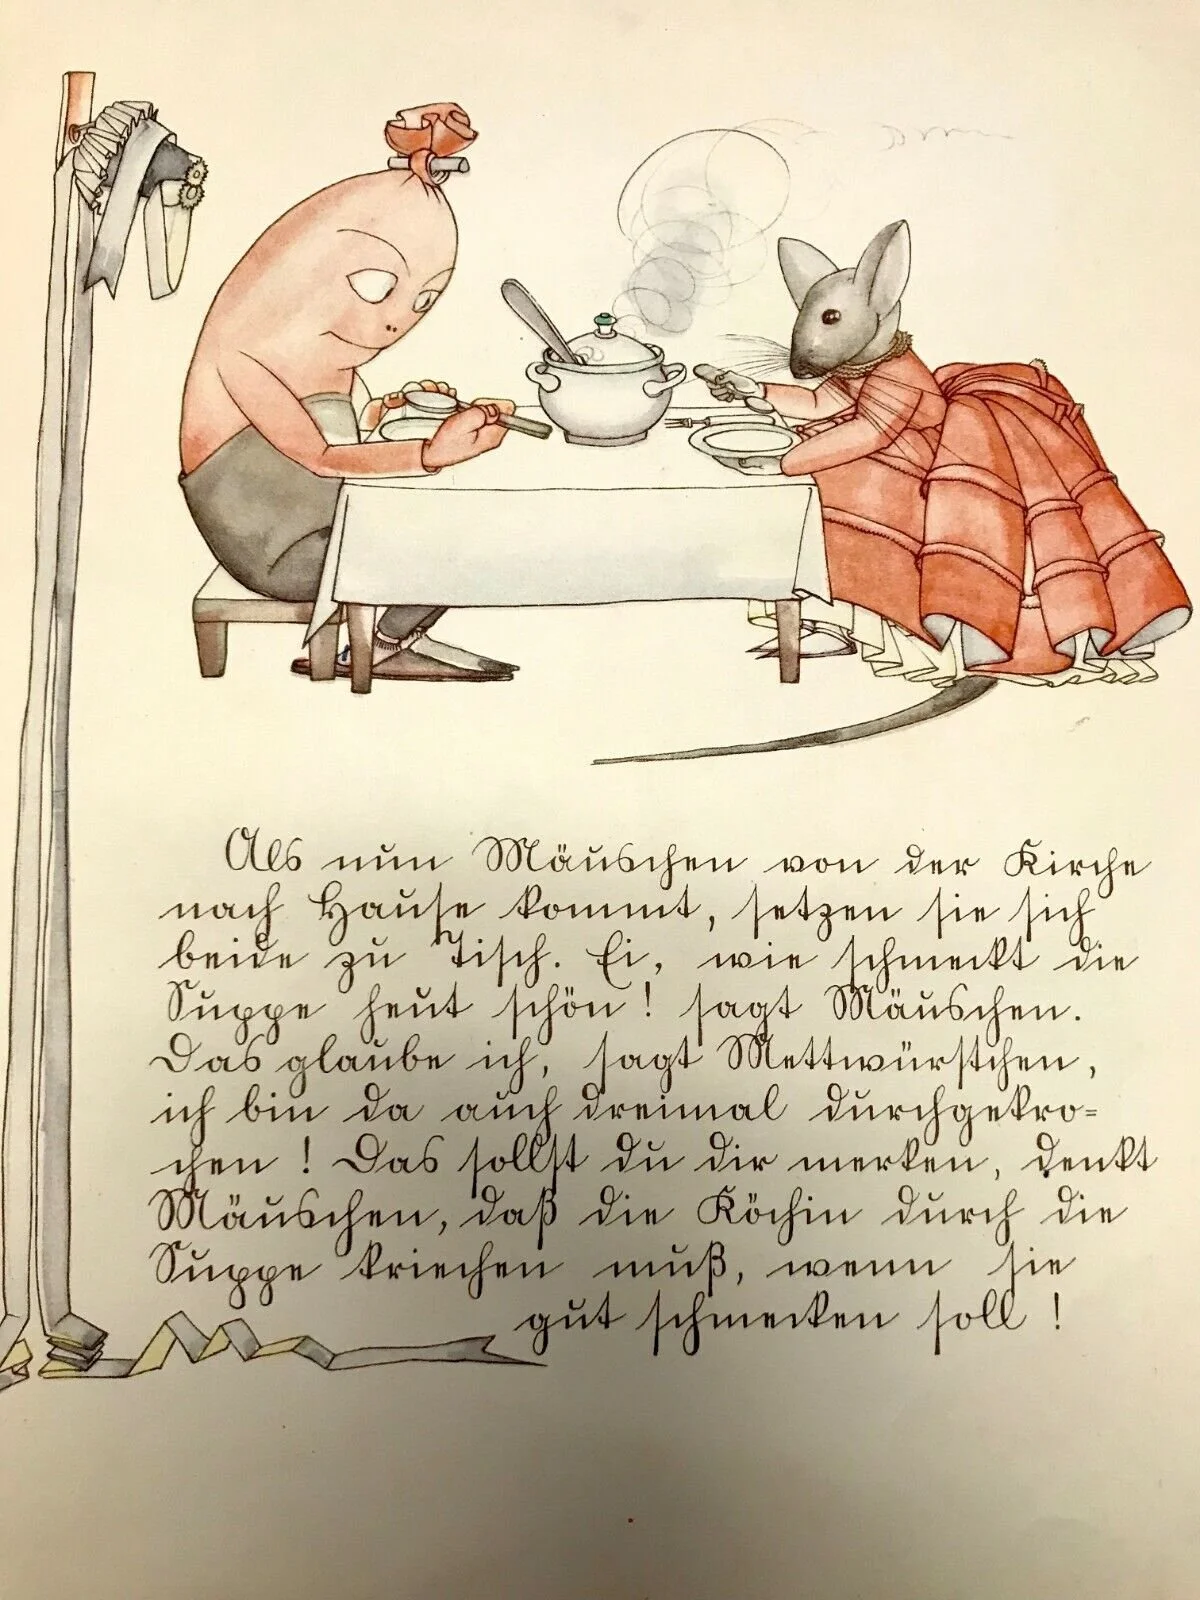 Als nun Mäuschen von der Kirche
nach Hause kommt, setzen sie sich
beide zu Tisch. Ei, wie schmeckt die
Suppe heut schön! sagt Mäuschen.
Das glaube ich, sagt Mettwürstchen,
ich bin da auch dreimal durchgekro=
chen! Das sollst du dir merken, denkt
Mäuschen, daß die Köchin durch die
Suppe kriechen muß, wenn sie
gut schmecken soll!